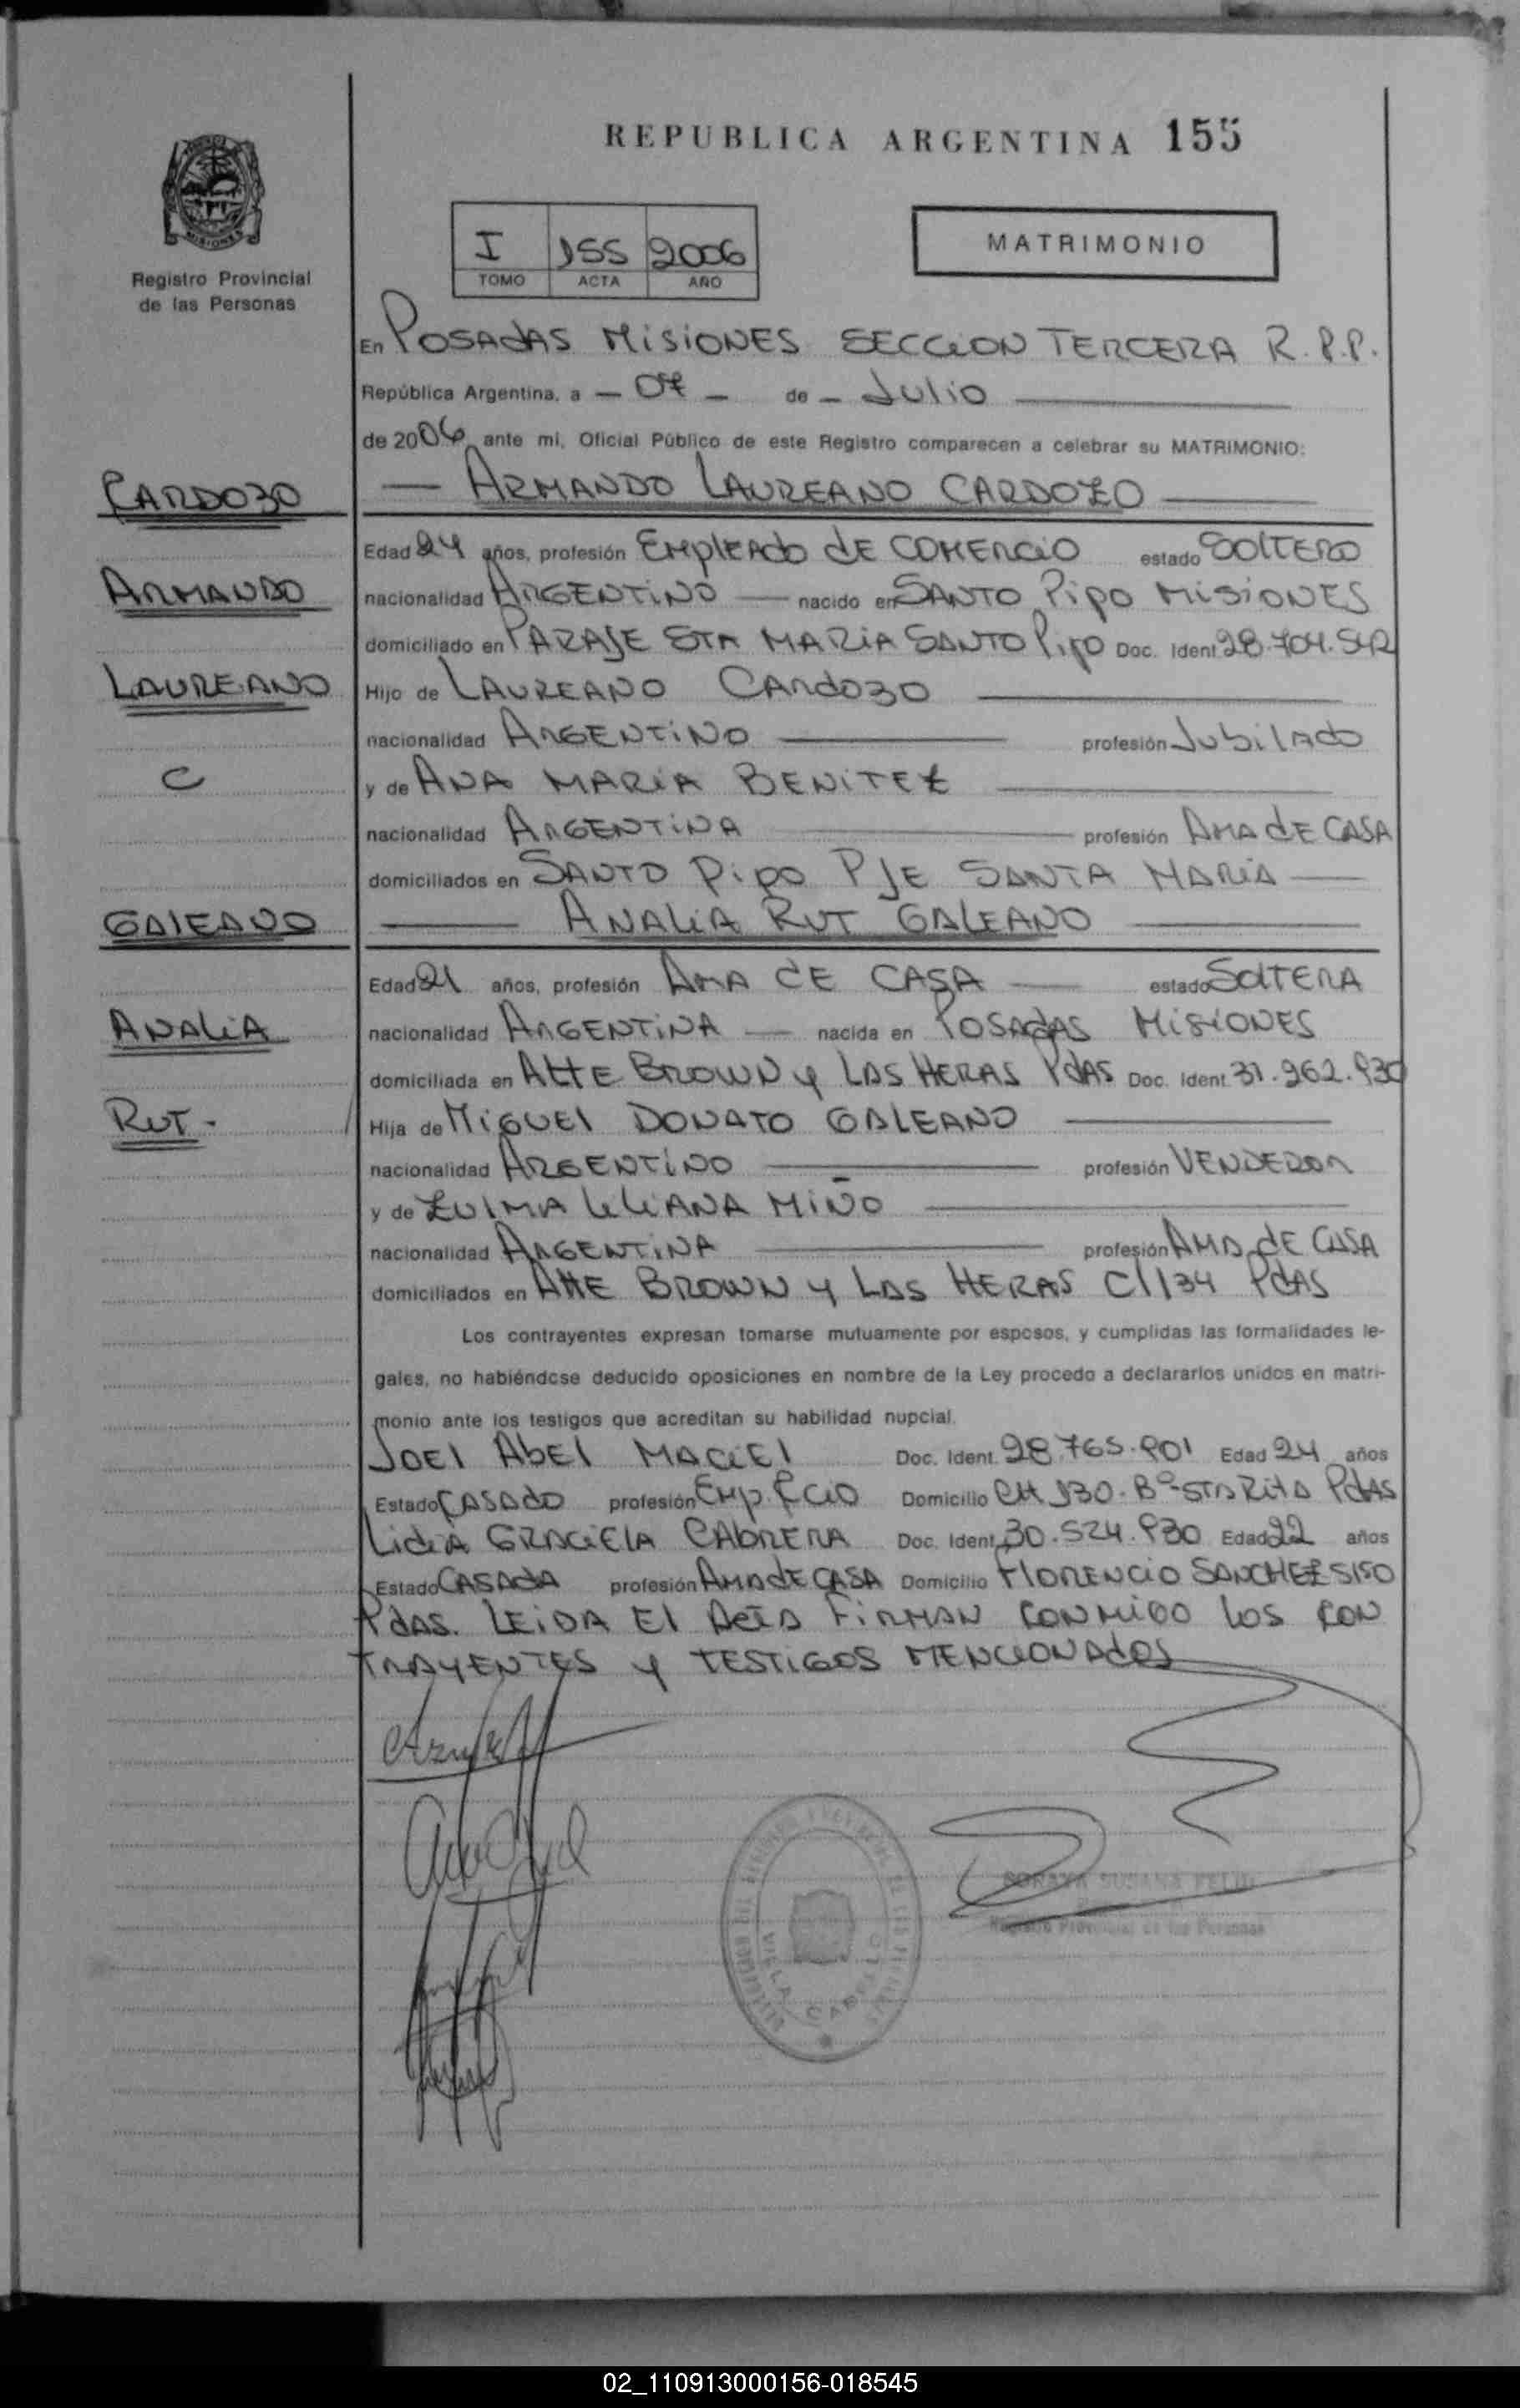 REPUBLICA ARGENTINA 155
I 155 2006
TOMO ACTA AÑO
MATRIMONIO
MISIONES
Registro Provincial
de las Personas
En POSADAS MISIONES SECCION TERCERA R.P.P.
República Argentina, a - 07 - de - Julio
de 2006 ante mi, Oficial Público de este Registro comparecen a celebrar su MATRIMONIO:
CARDOZO
ARMANDO LAUREANO CARDOZO
Edad 24 años, profesión EMPLEADO DE COMERCIO estado SOLTERO
ARMANDO
nacionalidad ARGENTINO nacido en SANTO PIPO MISIONES
domiciliado en PARAJE STA MARIA SANTO PIPO Doc. Ident 28.704.
LAUREANO
Hijo de LAUREANO CARDOZO
nacionalidad ARGENTINO profesión JUBILADO
C
y de ANA MARIA BENITEZ
nacionalidad ARGENTINA profesión AMA DE CASA
domiciliados en SANTO PIPO PJE SANTA MARIA
GALEANO
ANALIA RUT GALEANO
Edad 21 años, profesión AMA DE CASA estado SOLTERA
ANALIA
nacionalidad ARGENTINA nacida en POSADAS MISIONES
domiciliada en ALTE BROWN Y LAS HERAS PDAS Doc. Ident. 31.962.930
RUT -
Hija de MIGUEL DONATO GALEANO
nacionalidad ARGENTINO profesión VENDEDOR
y de ZULMA LILIANA MIÑO
nacionalidad ARGENTINA profesión AMA DE CASA
domiciliados en ALTE BROWN Y LAS HERAS C/134 PDAS
Los contrayentes expresan tomarse mutuamente por esposos, y cumplidas las formalidades le-
gales, no habiéndose deducido oposiciones en nombre de la Ley procedo a declararlos unidos en matri-
monio ante los testigos que acreditan su habilidad nupcial.
JOEL ABEL MACIEL Doc. Ident. 28.765.901 Edad 24 años
Estado CASADO profesión EMP. CCIO Domicilio CH 130. Bº STA RITA PDAS
LIDIA GRACIELA CABRERA Doc. Ident. 30.524.930 Edad 22 años
Estado CASADA profesión AMA DE CASA Domicilio FLORENCIO SANCHEZ 5150
PDAS. LEIDA EL ACTA FIRMAN CONMIGO LOS CON
TRAYENTES Y TESTIGOS MENCIONADOS
SORAYA SUSANA
Registro Provincial de las Personas
VILLA CABELLO
02_110913000156-018545